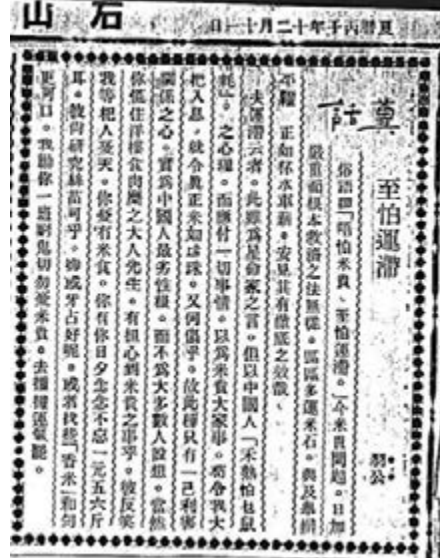 山石
夏曆丙子年十二月十一日
話
至怕運滯
羽公
俗語謂「唔怕米貴、至怕運滯。」今米貴問題。日加
嚴重而根本救濟之法無從。區區多運米石。與及舉辦
平糶 正如杯水車薪。安見其有徹底之效哉、
夫運滯云者。此雖爲星命家之言。但以中國人「禾熟怕乸鼠
耗」之心理。而應付一切事情。以爲米貴大家事。苟令我大
把人息。就令眞正米如珍珠。又何傷乎。故此種只有一己利害
關係之心。實爲中國人最劣性種。而不爲大多數人設想。當然
你儘住洋樓食肉糜之大人先生。有担心到米貴之事乎。彼反笑
我等杞人憂天。你冇米食。你有你日夕念念不忘一元五六斤
耳。彼尚研究絲苗可乎。抑或牙占好呢。或者找些「香米」和勻
更可口。我勸你一窮鬼切勿憂米貴。去運氣罷。